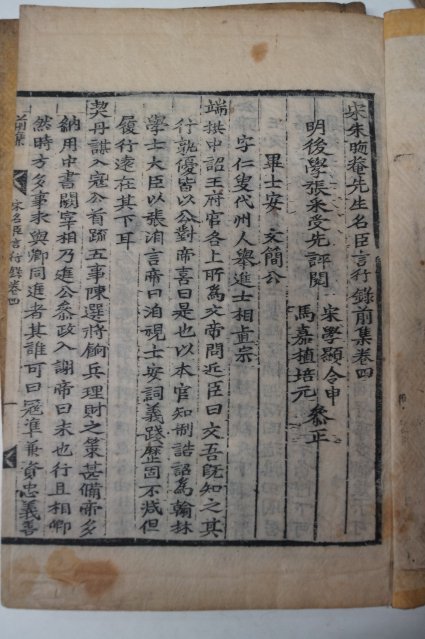 宋朱晦庵先生名臣言行錄前集卷四
明後學張采受先評閱
宋學顯令申
馬嘉植培元 叅正
畢士安 文簡公
字仁叟代州人舉進士相眞宗
端拱中詔王府官各上所為文帝問近臣曰文吾旣知之其
行孰優皆以公對帝喜曰是也以本官知制誥詔為翰林
學士大臣以張洎言帝曰洎視士安詞義踐歷固不減但
履行遠在其下耳
契丹謀入寇公首疏五事陳選將餉兵理財之策甚備帝多
納用中書闕宰相乃進公叅政入謝帝曰未也行且相卿
然時方多事求與卿同進者其誰可曰冦準兼資忠義善
前集
宋名臣言行錄卷四
一